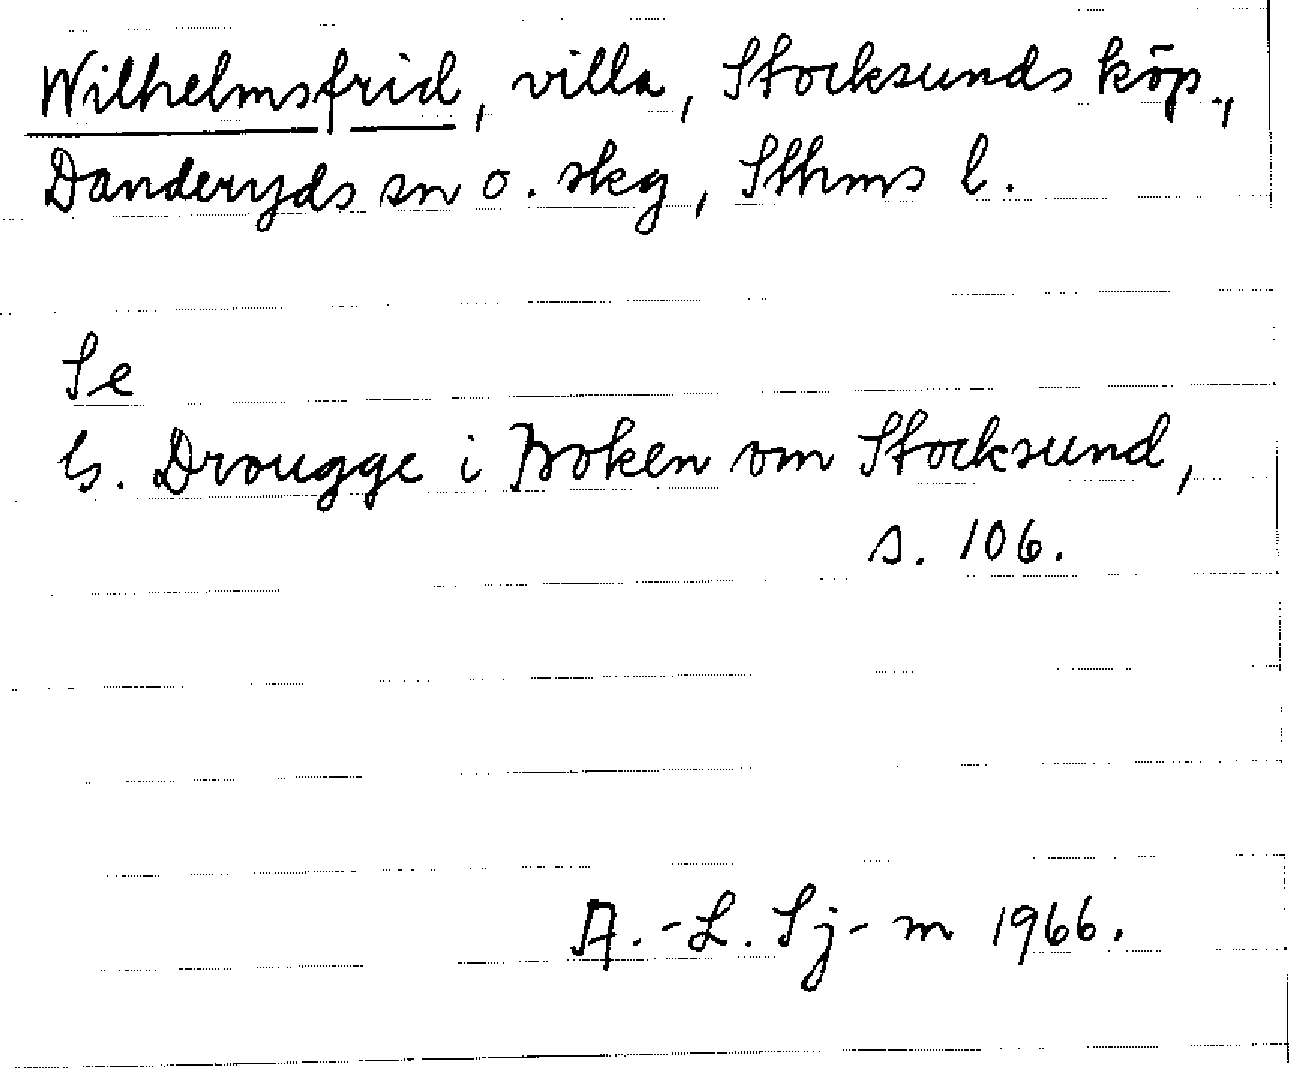 Wilhelmsfrid, villa, Stocksunds köp.,
Danderyds sn o. skg, Sthms l.
Se
G. Drougge i Boken om Stocksund,
s. 106.
A.-L. Sj-m 1966.